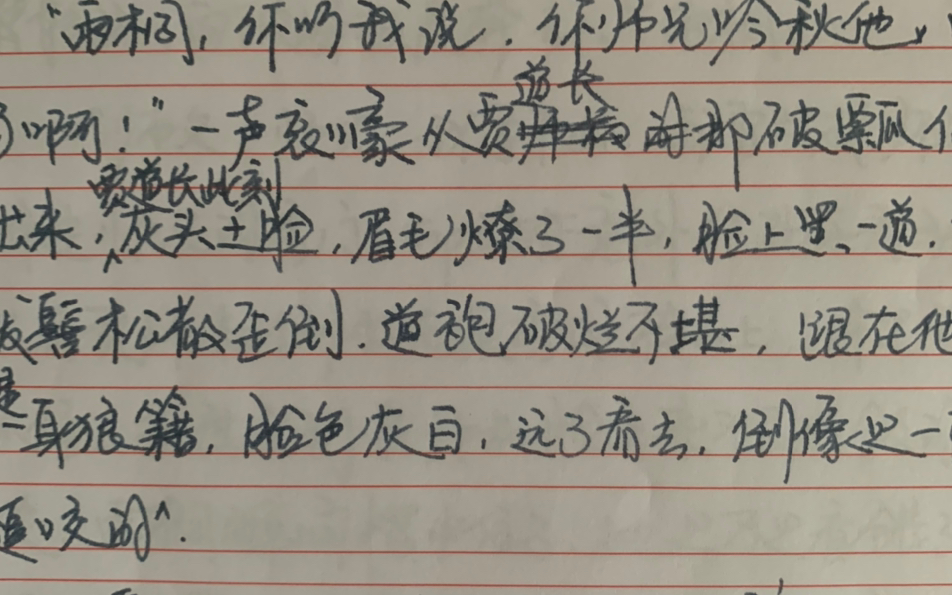 "雨桐，你听我说，你师兄吟秋他，
啊！"一声哀嚎从贾道长的那破瓢
出来，贾道长此刻灰头土脸，眉毛燎了一半，脸上黑一道，
发髻松散歪倒，道袍破烂不堪，跟在他
是一身狼籍，脸色灰白，远了看去，倒像是一
追咬的。